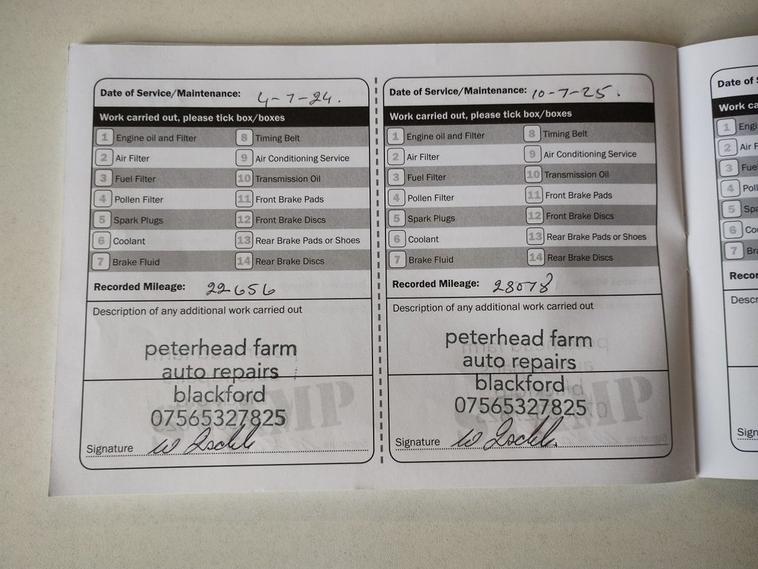 Date of Service/Maintenance: 4-7-24.
Work carried out, please tick box/boxes
1 Engine oil and Filter 8 Timing Belt
2 Air Filter 9 Air Conditioning Service
3 Fuel Filter 10 Transmission Oil
4 Pollen Filter 11 Front Brake Pads
5 Spark Plugs 12 Front Brake Discs
6 Coolant 13 Rear Brake Pads or Shoes
7 Brake Fluid 14 Rear Brake Discs
Recorded Mileage: 22656
Description of any additional work carried out
peterhead farm
auto repairs
blackford
07565327825
Signature
Date of Service/Maintenance: 10-7-25.
Work carried out, please tick box/boxes
1 Engine oil and Filter 8 Timing Belt
2 Air Filter 9 Air Conditioning Service
3 Fuel Filter 10 Transmission Oil
4 Pollen Filter 11 Front Brake Pads
5 Spark Plugs 12 Front Brake Discs
6 Coolant 13 Rear Brake Pads or Shoes
7 Brake Fluid 14 Rear Brake Discs
Recorded Mileage: 28078
Description of any additional work carried out
peterhead farm
auto repairs
blackford
07565327825
Signature
Date of
Work
1
2 Air
3
4
5
6
7